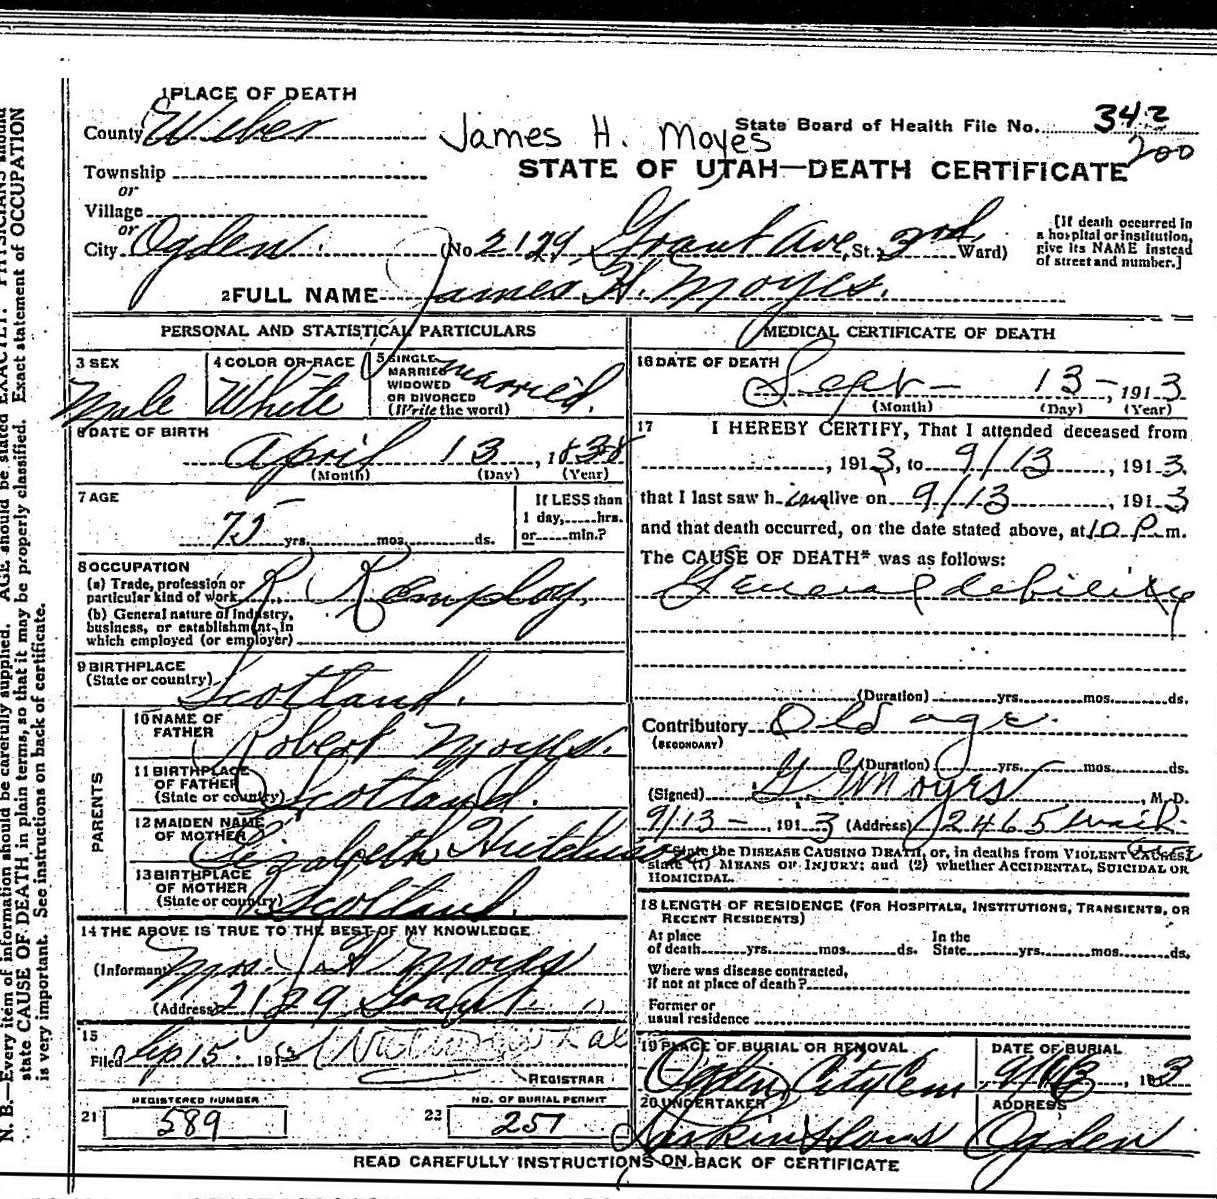 1 PLACE OF DEATH
County Weber
James H. Moyes
State Board of Health File No. 342
200
STATE OF UTAH—DEATH CERTIFICATE
Township
or
Village
or
City Ogden. (No 2129 Grant Ave, St.; 3rd Ward)
[If death occurred in
a hospital or institution,
give its NAME instead
of street and number.]
2 FULL NAME James H. Moyes.
PERSONAL AND STATISTICAL PARTICULARS
3 SEX
Male
4 COLOR OR RACE
White
5 SINGLE
MARRIED
WIDOWED
OR DIVORCED
(Write the word)
Married.
6 DATE OF BIRTH
April 13, 1838
(Month) (Day) (Year)
7 AGE
75 yrs. mos. ds.
If LESS than
1 day, hrs.
or min.?
8 OCCUPATION
(a) Trade, profession or
particular kind of work R R Employ.
(b) General nature of Industry,
business, or establishment in
which employed (or employer)
9 BIRTHPLACE
(State or country)
Scotland.
PARENTS
10 NAME OF
FATHER
Robert Moyes.
11 BIRTHPLACE
OF FATHER
(State or country)
Scotland.
12 MAIDEN NAME
OF MOTHER
Elizabeth
13 BIRTHPLACE
OF MOTHER
(State or country)
Scotland.
14 THE ABOVE IS TRUE TO THE BEST OF MY KNOWLEDGE
(Informant) Mrs. J H Moyes
(Address) 2129 Grant
15
Filed Sep 15. 1913
REGISTRAR
REGISTERED NUMBER
21 589
NO. OF BURIAL PERMIT
22 257
MEDICAL CERTIFICATE OF DEATH
16 DATE OF DEATH
Sept- 13-, 1913
(Month) (Day) (Year)
17 I HEREBY CERTIFY, That I attended deceased from
, 1913, to 9/13, 1913.
that I last saw him alive on 9/13, 1913
and that death occurred, on the date stated above, at 10 P.m.
The CAUSE OF DEATH* was as follows:
General debility
(Duration) yrs. mos. ds.
Contributory Old age.
(SECONDARY)
(Duration) yrs. mos. ds.
(Signed) Moyes, M. D.
9/13-, 1913 (Address) 2465 Wash.
Ave
*State the DISEASE CAUSING DEATH, or, in deaths from VIOLENT CAUSES,
state (1) MEANS OF INJURY; and (2) whether ACCIDENTAL, SUICIDAL OR
HOMICIDAL.
18 LENGTH OF RESIDENCE (FOR HOSPITALS, INSTITUTIONS, TRANSIENTS, OR
RECENT RESIDENTS)
At place
of death yrs. mos. ds.
In the
State yrs. mos. ds.
Where was disease contracted,
If not at place of death?
Former or
usual residence
19 PLACE OF BURIAL OR REMOVAL
Ogden City Cem
DATE OF BURIAL
, 1913
20 UNDERTAKER
Larkin & Sons
ADDRESS
Ogden
READ CAREFULLY INSTRUCTIONS ON BACK OF CERTIFICATE
N. B. Every item of information should be carefully supplied. AGE should be stated EXACTLY. PHYSICIANS should
state CAUSE OF DEATH in plain terms, so that it may be properly classified. Exact statement of OCCUPATION
is very important. See instructions on back of certificate.